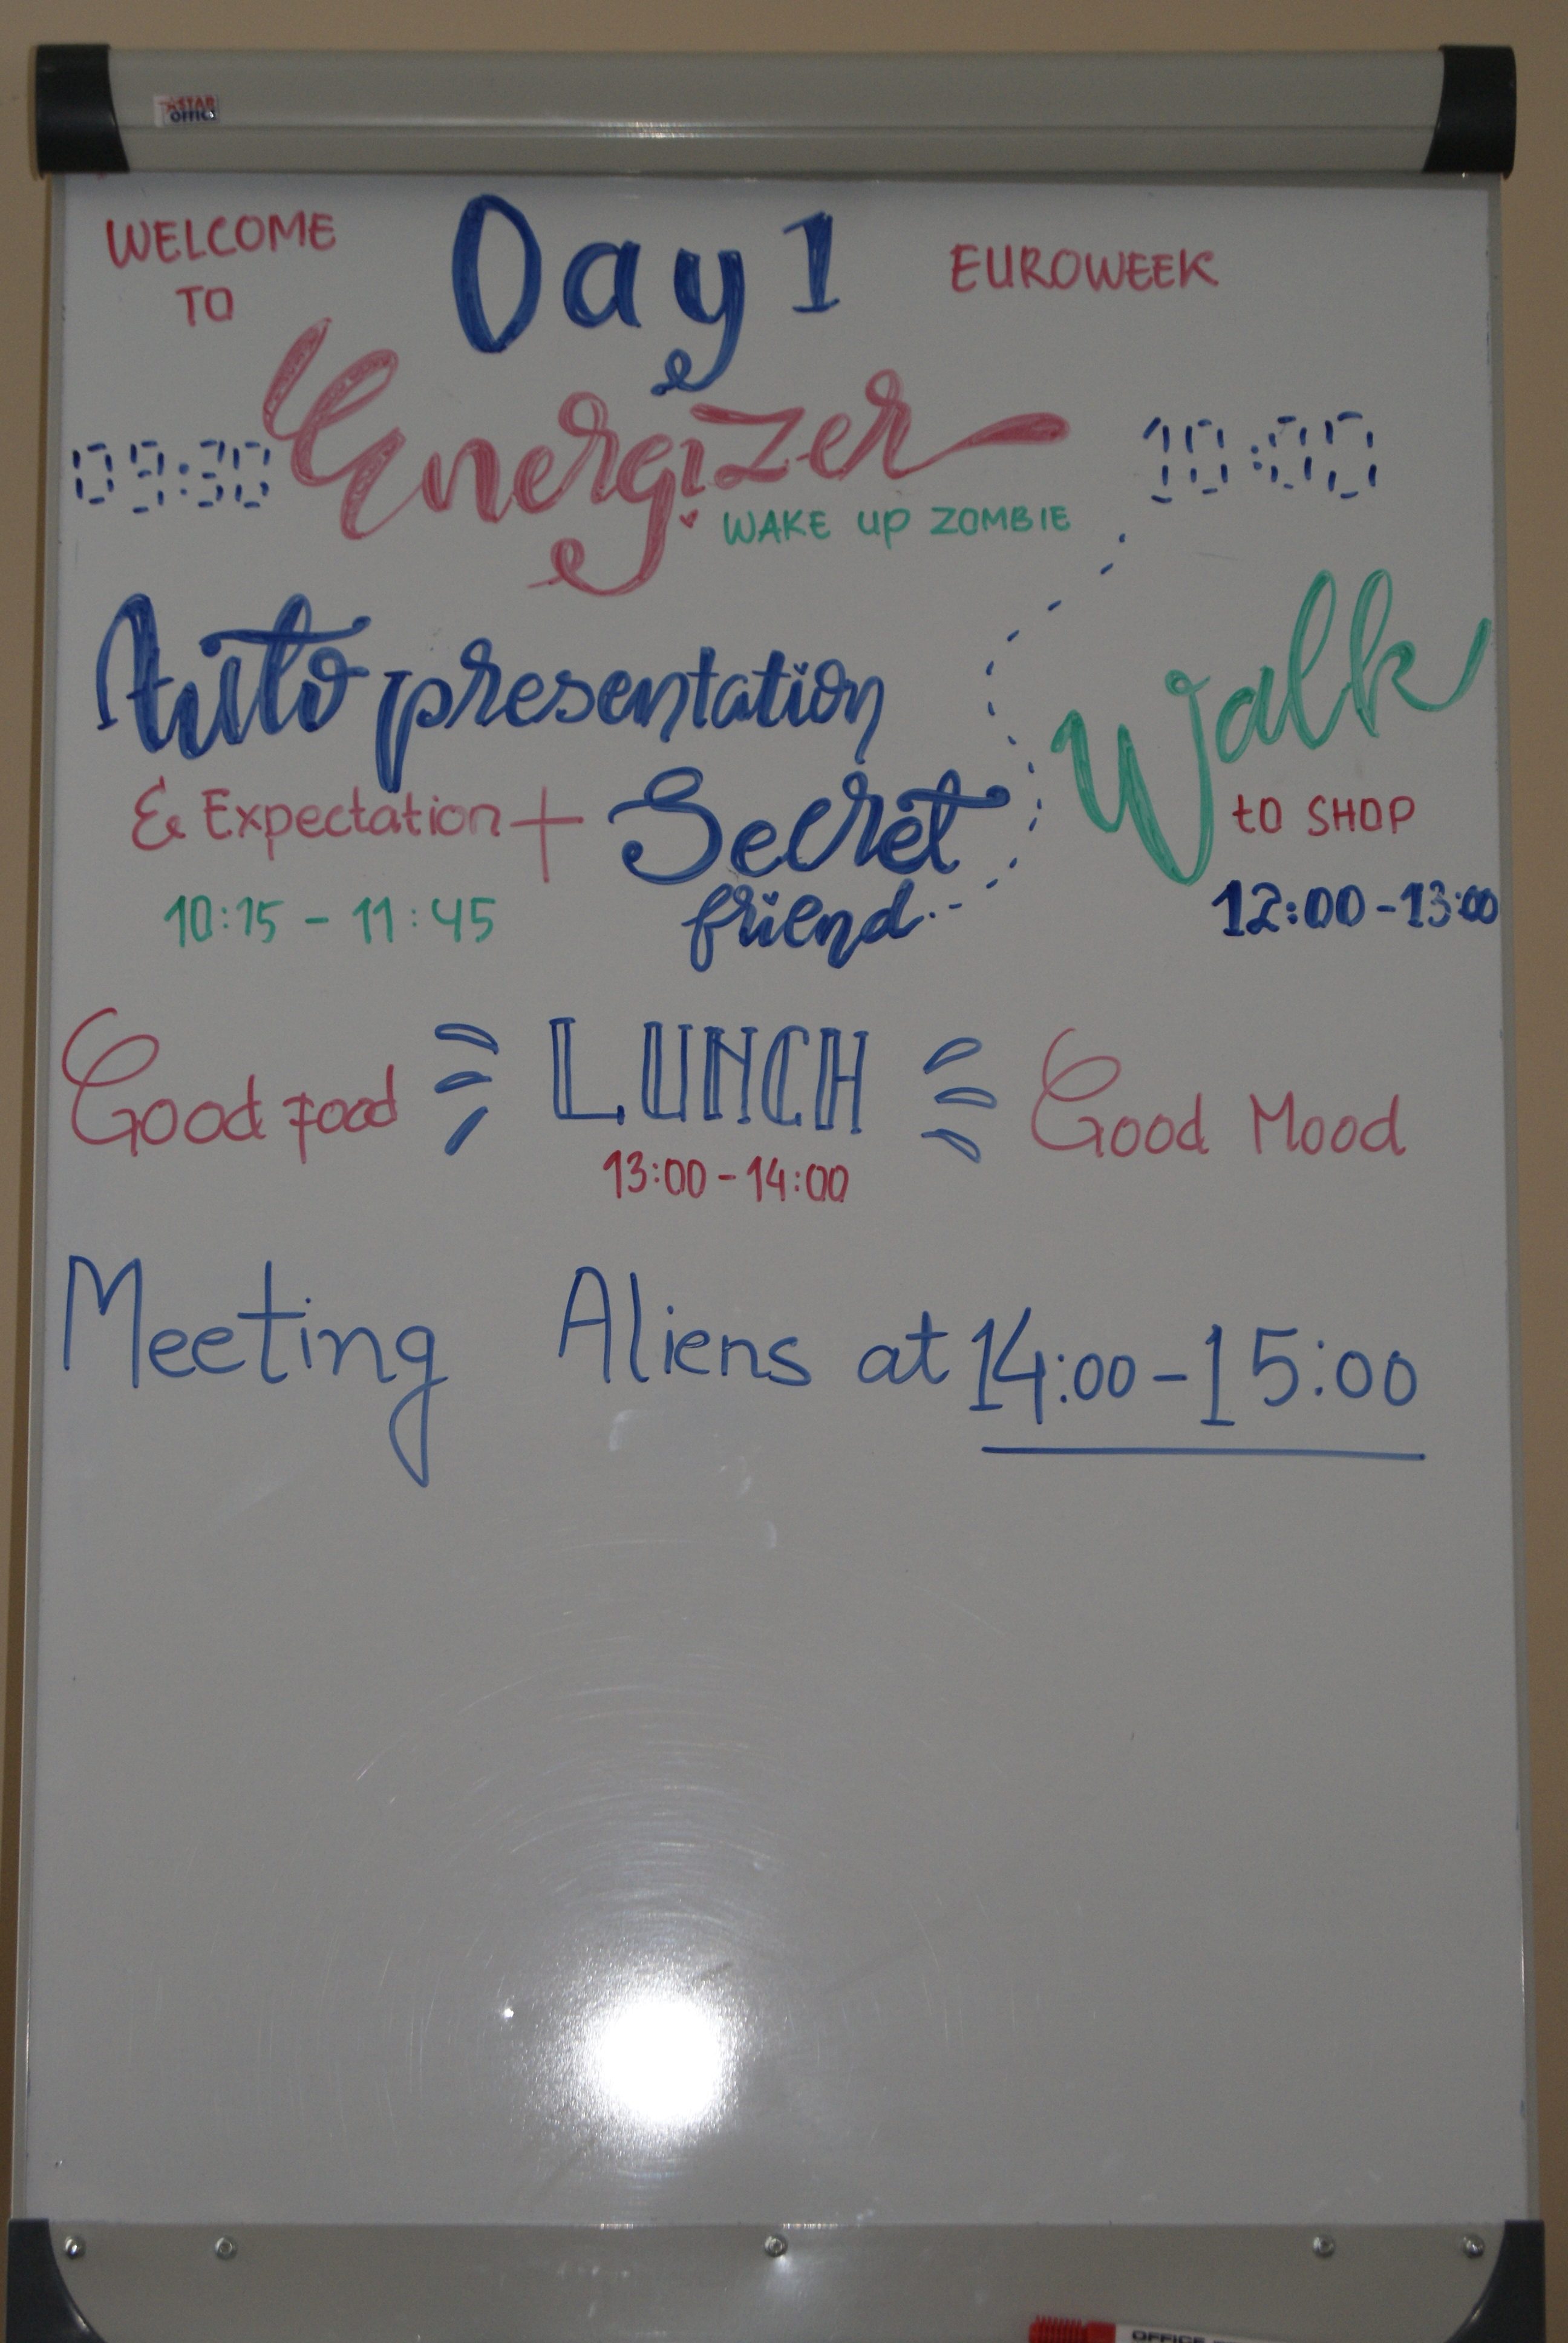 STAR OFFICE
WELCOME TO
Day 1
EUROWEEK
09:30 Energizer 10:00
WAKE UP ZOMBIE
Auto presentation
& Expectation + Secret friend
10:15 - 11:45
Walk
to SHOP
12:00 - 13:00
Good food LUNCH Good Mood
13:00 - 14:00
Meeting Aliens at 14:00 - 15:00
OFFICE